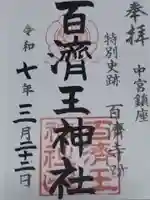 奉拝 中宮鎮座
特別史跡 百濟寺跡
百濟王神社
令和七年三月二十二日